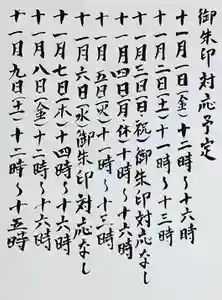 御朱印対応予定
十一月一日(金)十二時〜十六時
十一月二日(土)十一時〜十三時
十一月三日(日・祝)御朱印対応なし
十一月四日(月・休)十時〜十六時
十一月五日(火)十一時〜十三時
十一月六日(水)御朱印対応なし
十一月七日(木)十四時〜十六時
十一月八日(金)十二時〜十六時
十一月九日(土)十二時〜十五時